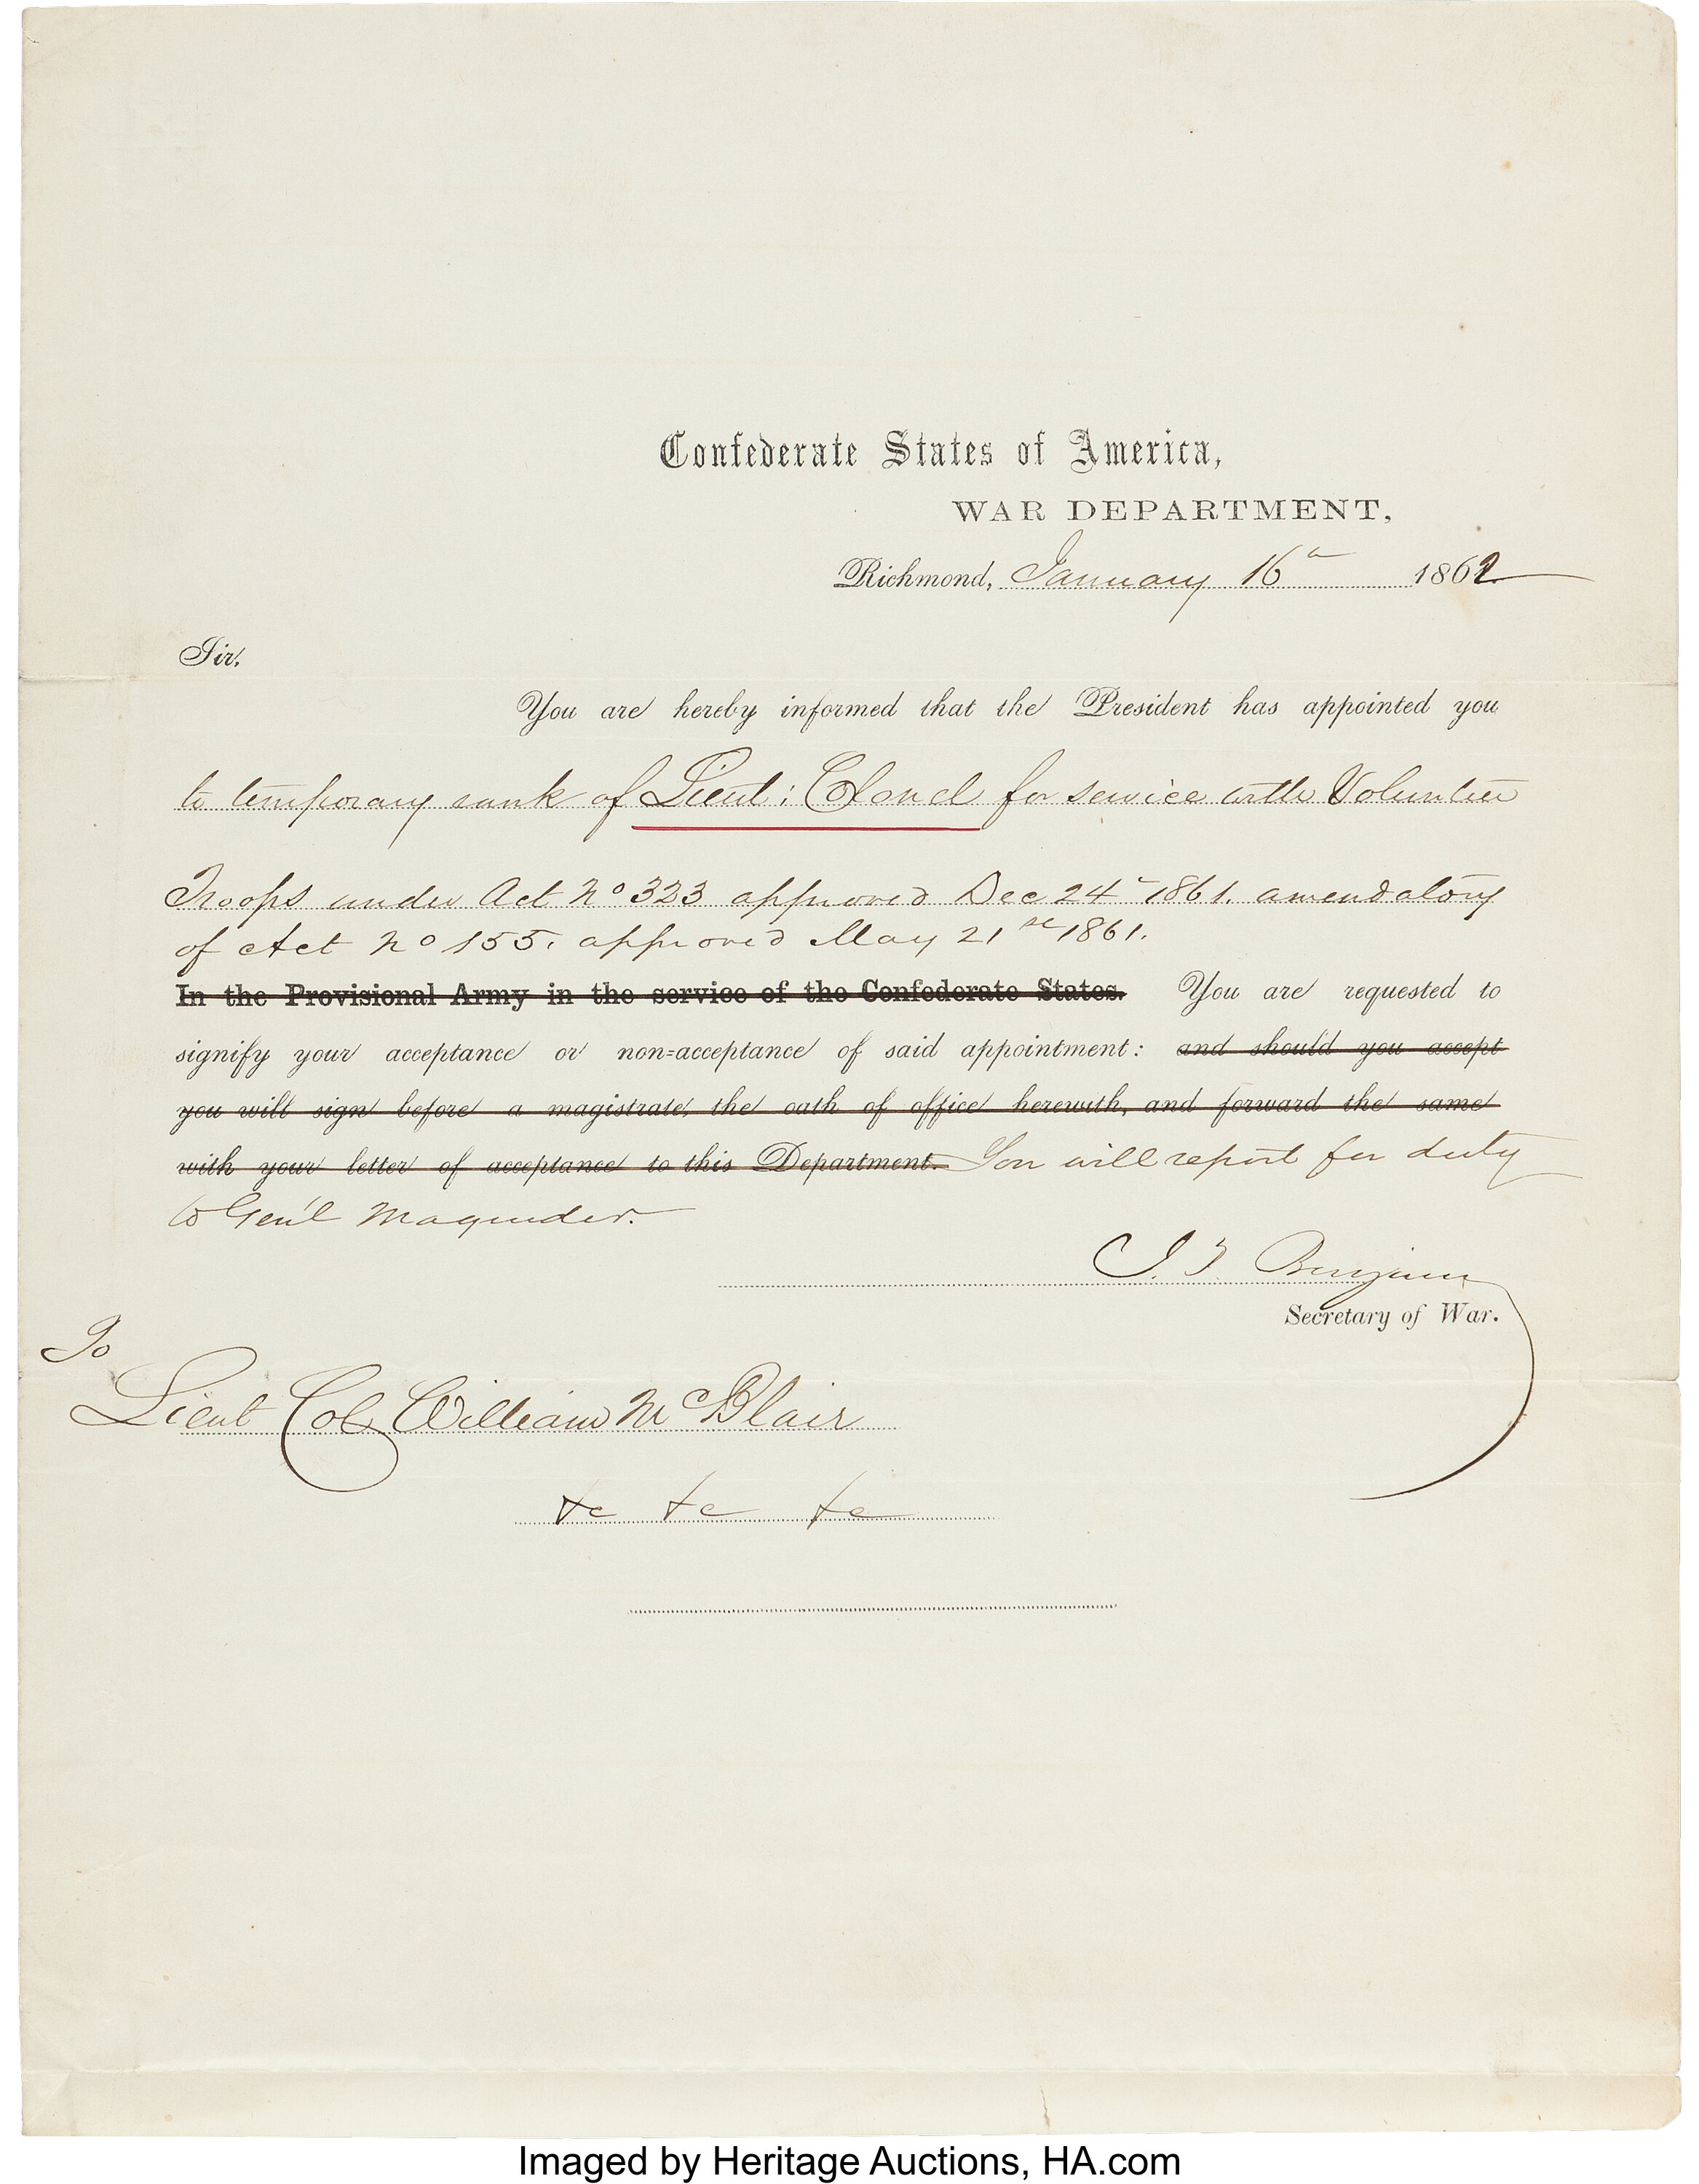 Confederate States of America,
WAR DEPARTMENT,
Richmond, January 16th 1862
Sir,
You are hereby informed that the President has appointed you
to temporary rank of Lieut: Colonel for service with Volunteer
Troops under Act No 323 approved Dec 24th 1861. amendatory
of Act No 155. approved May 21st 1861.
In the Provisional Army in the service of the Confederate States. You are requested to
signify your acceptance or non=acceptance of said appointment: and should you accept
you will sign before a magistrate, the oath of office herewith, and forward the same
with your letter of acceptance to this Department. You will report for duty
to Gen'l Magruder.
J. P. Benjamin
Secretary of War.
To
Lieut Col William McBlair
&c &c &c
Imaged by Heritage Auctions, HA.com